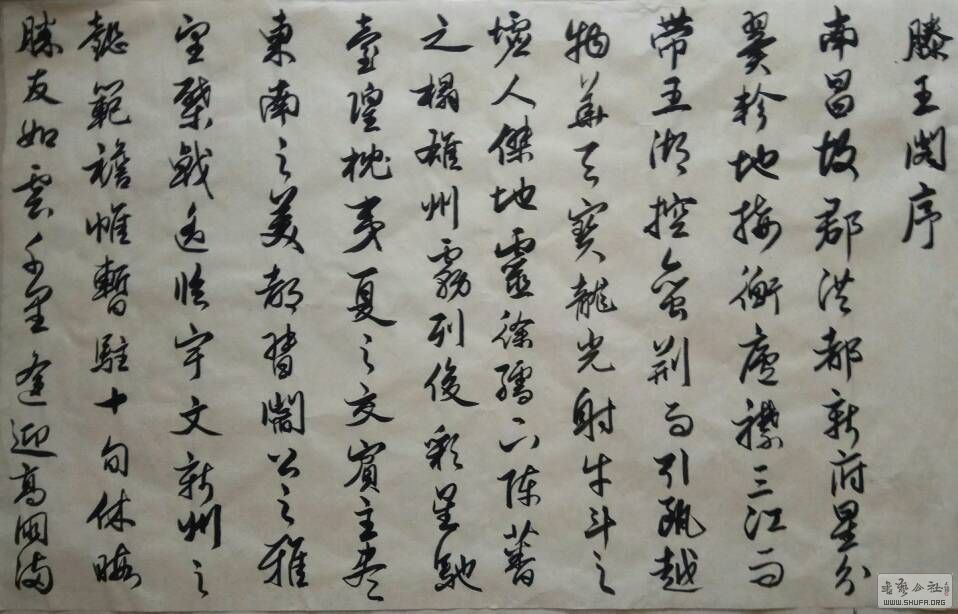 滕王阁序
南昌故郡洪都新府星分
翼軫地接衡廬襟三江而
帶五湖控蠻荆而引甌越
物華天寶龍光射牛斗之
墟人傑地靈徐孺下陳蕃
之榻雄州霧列俊彩星馳
臺隍枕夷夏之交賓主盡
東南之美都督閻公之雅
望棨戟遥臨宇文新州之
懿範襜帷暫駐十旬休暇
勝友如雲千里逢迎高朋滿
书艺公社
WWW.SHUFA.ORG